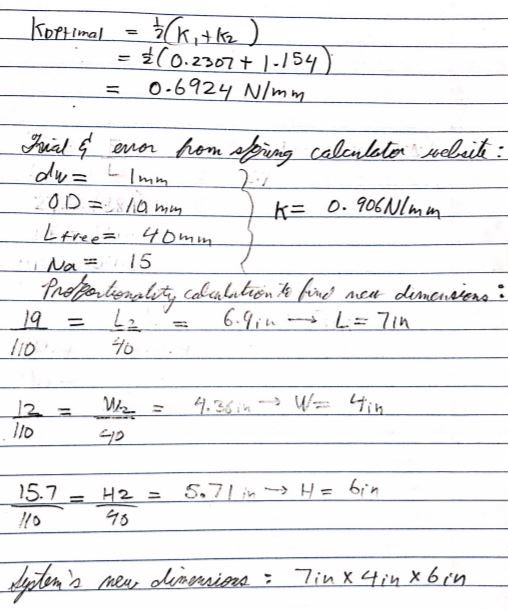 Koptimal = ½(K₁+K₂)
= ½(0.2307 + 1.154)
= 0.6924 N/mm
Trial & error from spring calculator website:
dw = 1mm
OD = 10 mm
Lfree = 40mm
Na = 15
K = 0.906N/mm
Proportionality calculation to find new dimensions:
19/110 = L2/40 = 6.9in → L = 7in
12/110 = W2/40 = 4.36in → W = 4in
15.7/110 = H2/40 = 5.71in → H = 6in
System's new dimensions: 7in x 4in x 6in